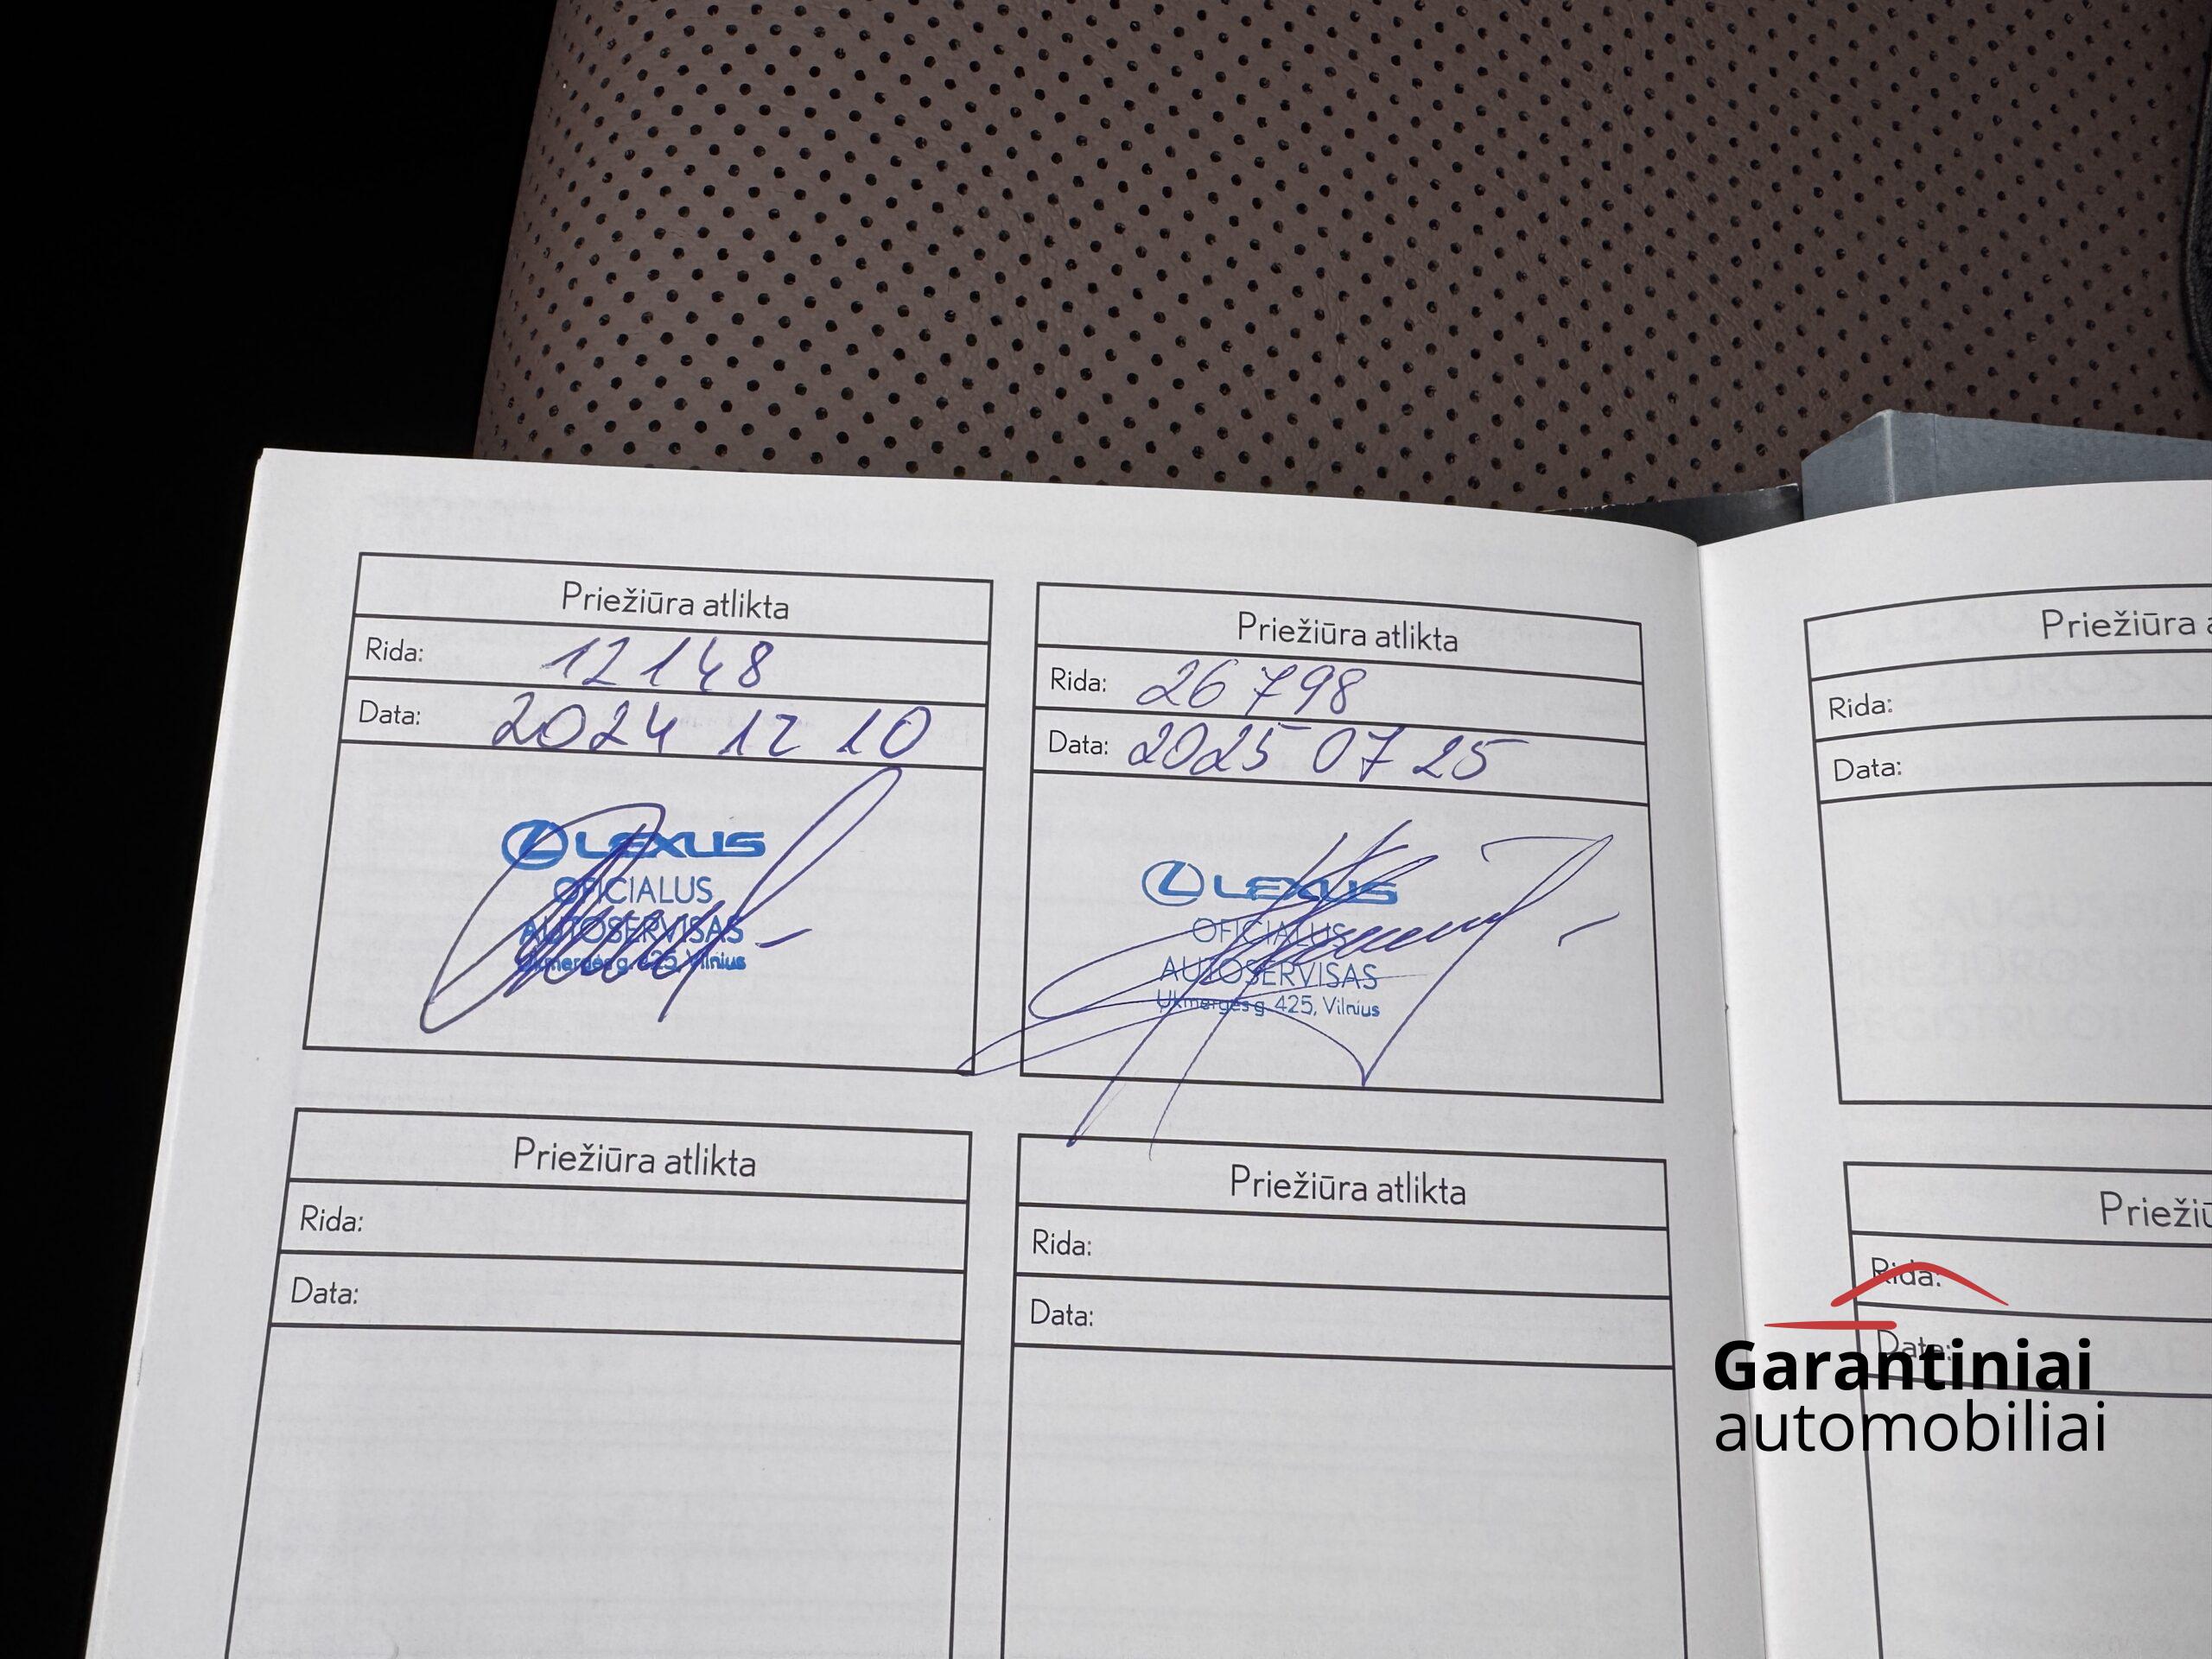 Priežiūra atlikta
Rida: 12148
Data: 2024 12 10
LEXUS
OFICIALUS
AUTOSERVISAS
Ukmergės g. 425, Vilnius
Priežiūra atlikta
Rida: 26798
Data: 2025 07 25
LEXUS
OFICIALUS
AUTOSERVISAS
Ukmergės g. 425, Vilnius
Priežiūra atlikta
Rida:
Data:
Priežiūra atlikta
Rida:
Data:
Priežiūra a
Rida:
Data:
Priežiū
Rida:
Data:
Garantiniai
automobiliai